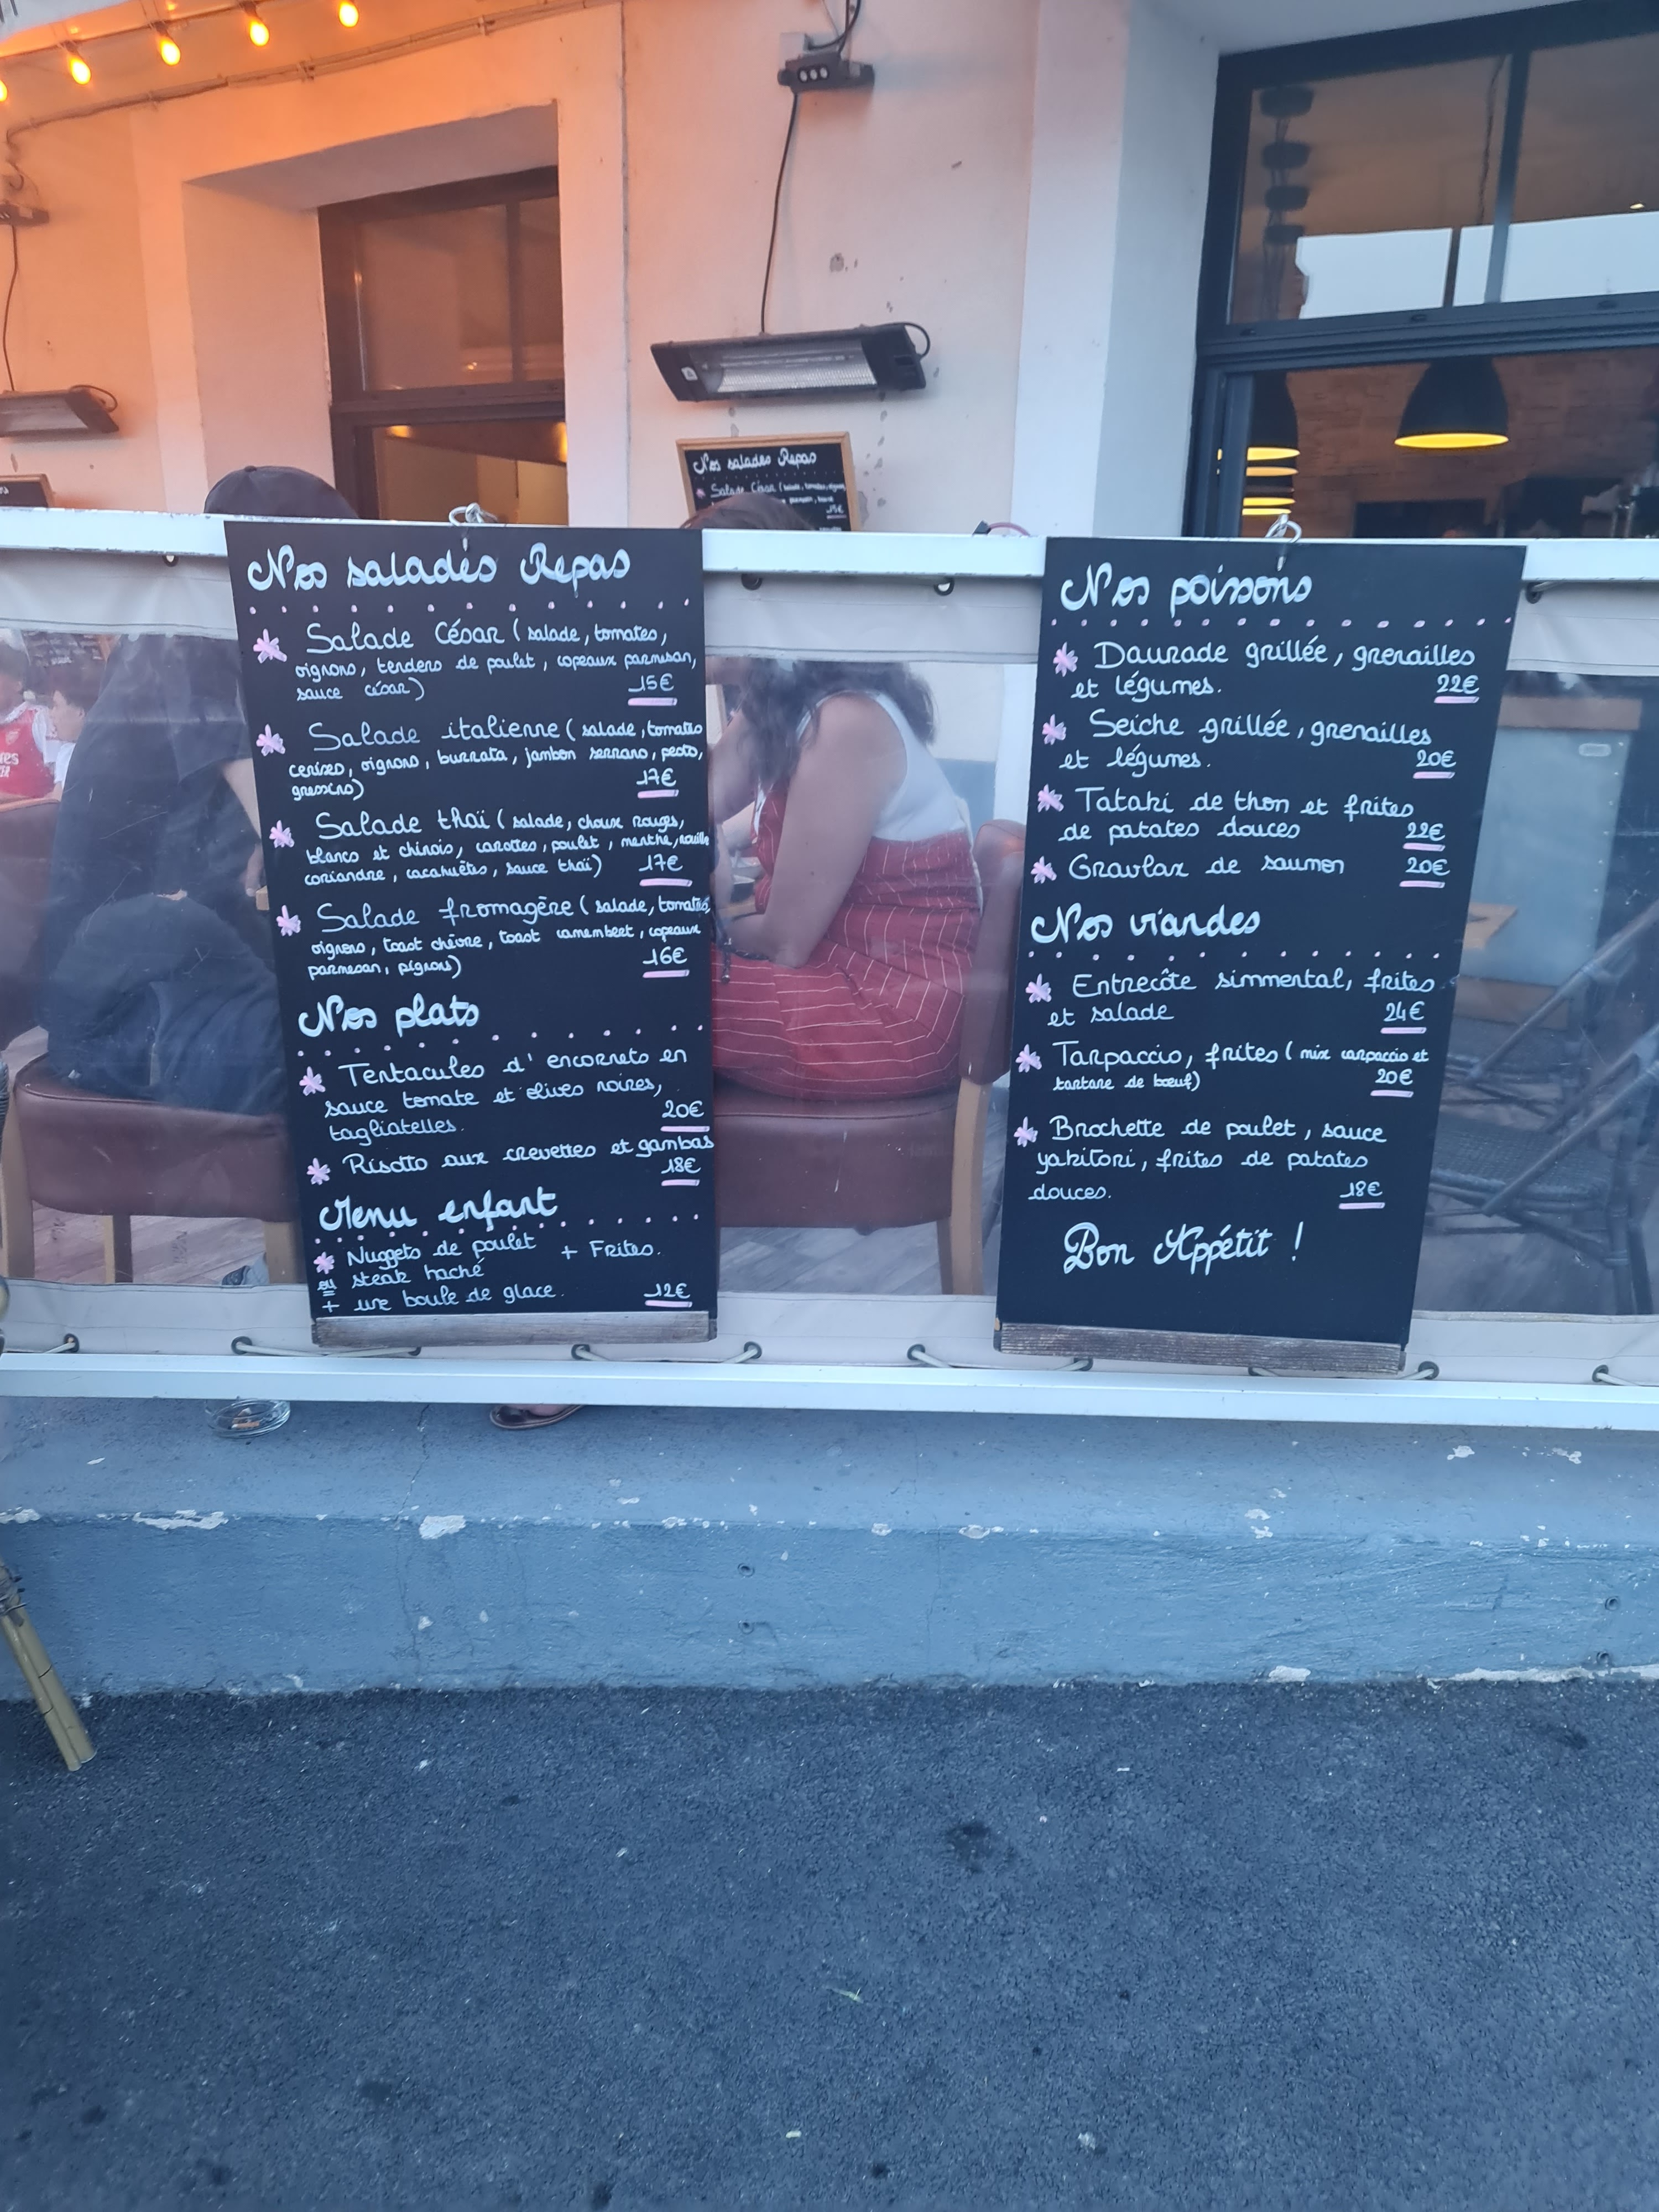 Nos salades Repas
Salade César (salade, tomates, oignons
15€
Nos salades Repas
Salade César (salade, tomates,
oignons, tenders de poulet, copeaux parmesan,
sauce césar) 15€
Salade italienne (salade, tomates
cerises, oignons, burrata, jambon serrano, pesto,
gressins) 17€
Salade thaï (salade, choux rouges,
blancs et chinois, carottes, poulet, menthe, nouille
coriandre, cacahuètes, sauce thaï) 17€
Salade fromagère (salade, tomates,
oignons, toast chèvre, toast camembert, copeaux
parmesan, pignons) 16€
Nos plats
Tentacules d'encornets en
sauce tomate et olives noires,
tagliatelles. 20€
Risotto aux crevettes et gambas
18€
Menu enfant
Nuggets de poulet + Frites.
ou steak haché
+ une boule de glace. 12€
Nos poissons
Daurade grillée, grenailles
et légumes. 22€
Seiche grillée, grenailles
et légumes. 20€
Tataki de thon et frites
de patates douces 22€
Gravlax de saumon 20€
Nos viandes
Entrecôte simmental, frites
et salade 24€
Tarpaccio, frites (mix carpaccio et
tartare de bœuf) 20€
Brochette de poulet, sauce
yakitori, frites de patates
douces. 18€
Bon Appétit !